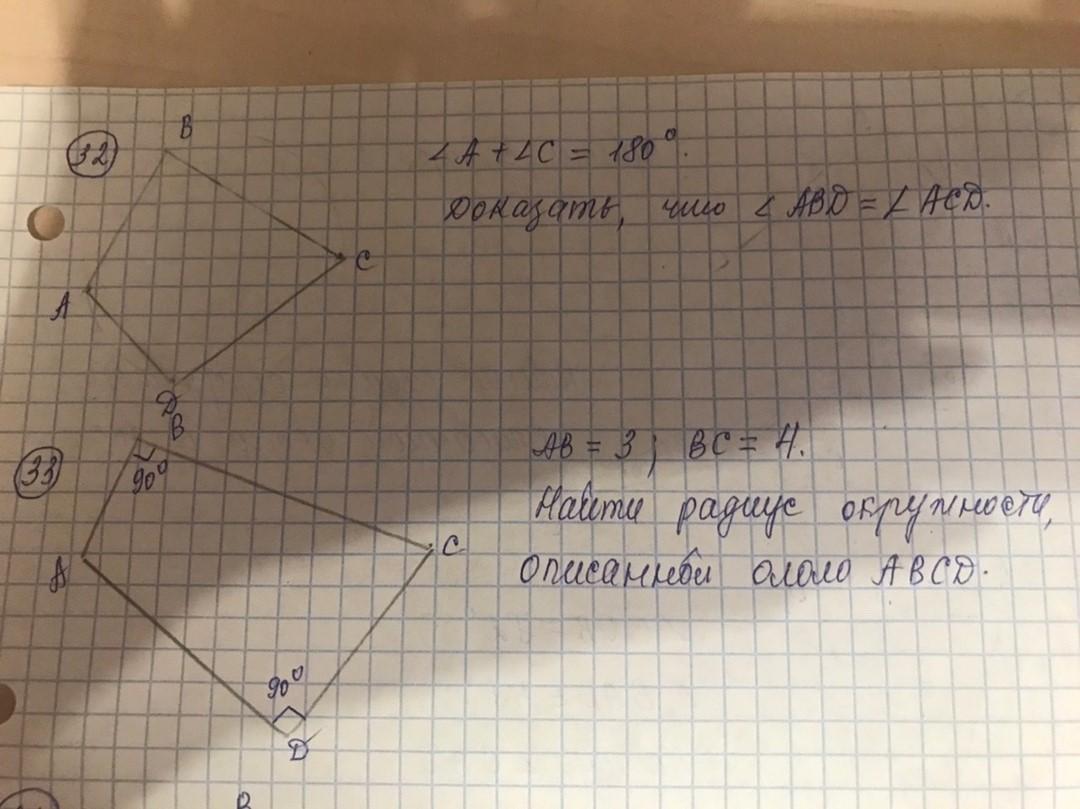 32
B
∠A + ∠C = 180°.
Доказать, что ∠ABD = ∠ACD.
C
A
D
33
B
90°
AB = 3; BC = 4.
Найти радиус окружности,
описанной около ABCD.
C
A
90°
D
B